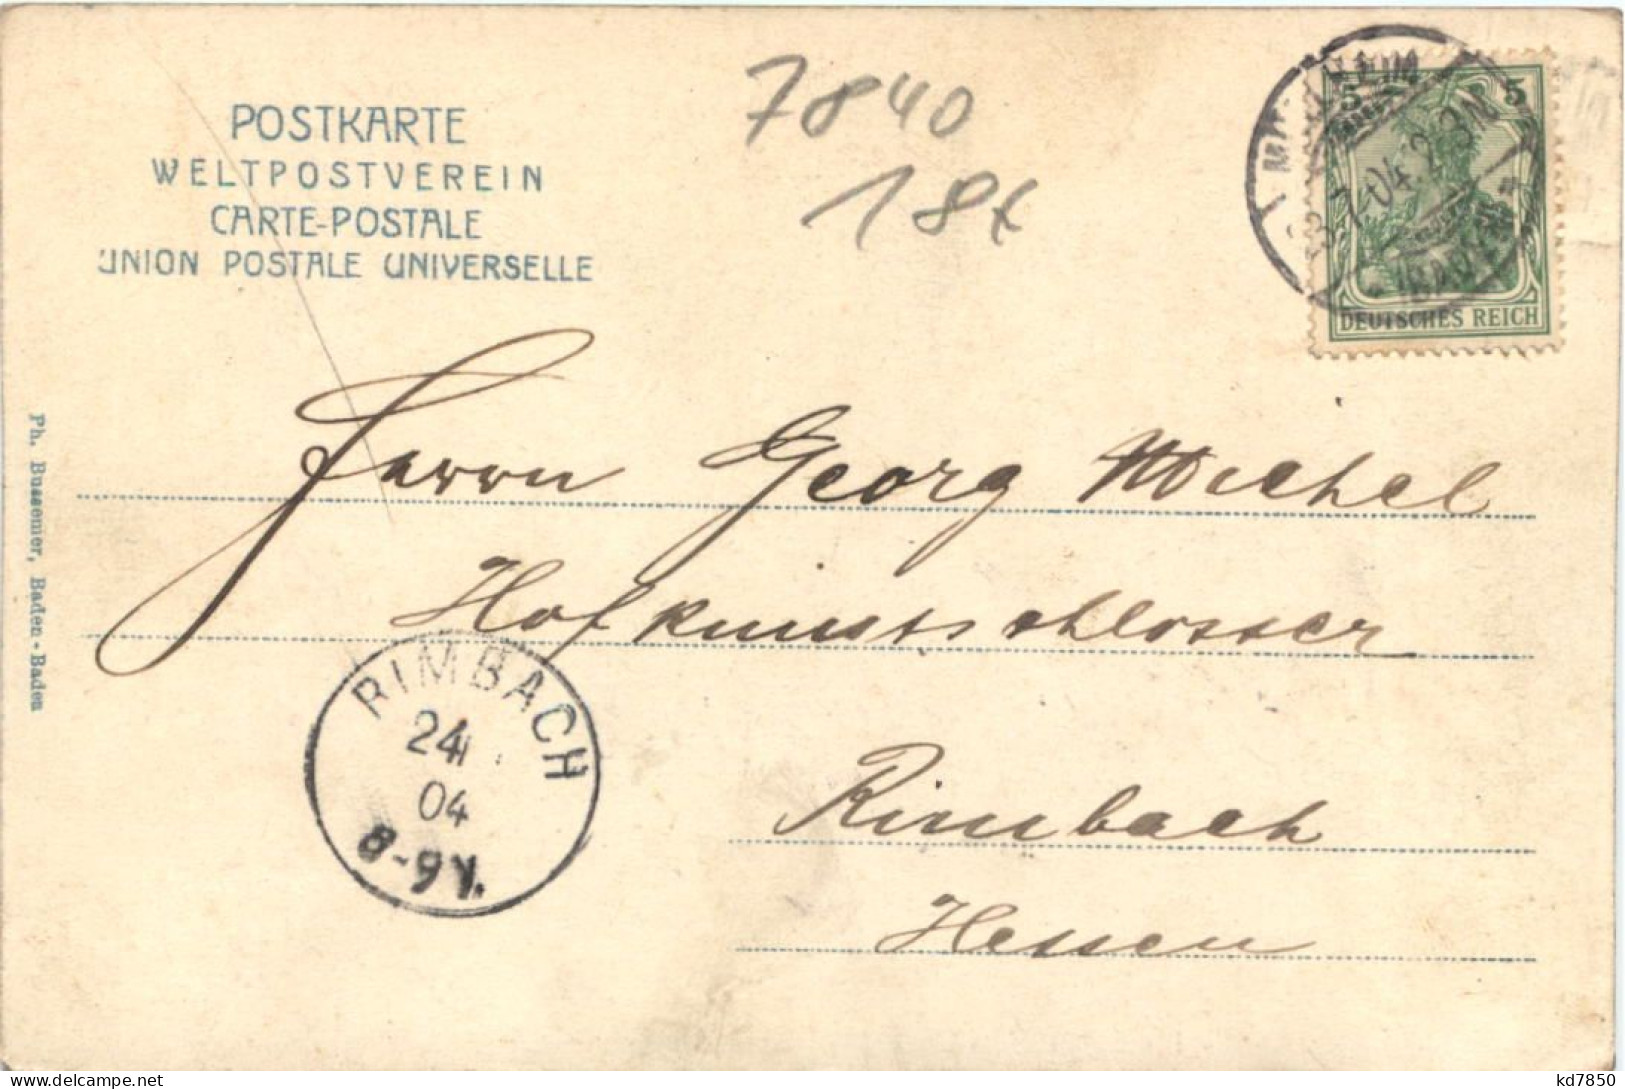 POSTKARTE
WELTPOSTVEREIN
CARTE-POSTALE
UNION POSTALE UNIVERSELLE
7840
18
5 5
DEUTSCHES REICH
Herrn Georg Michel
Hofkunstschlosser
Rimbach
Hessen
RIMBACH
24
04
8-9V.
Ph. Bussemer, Baden-Baden
kd7850